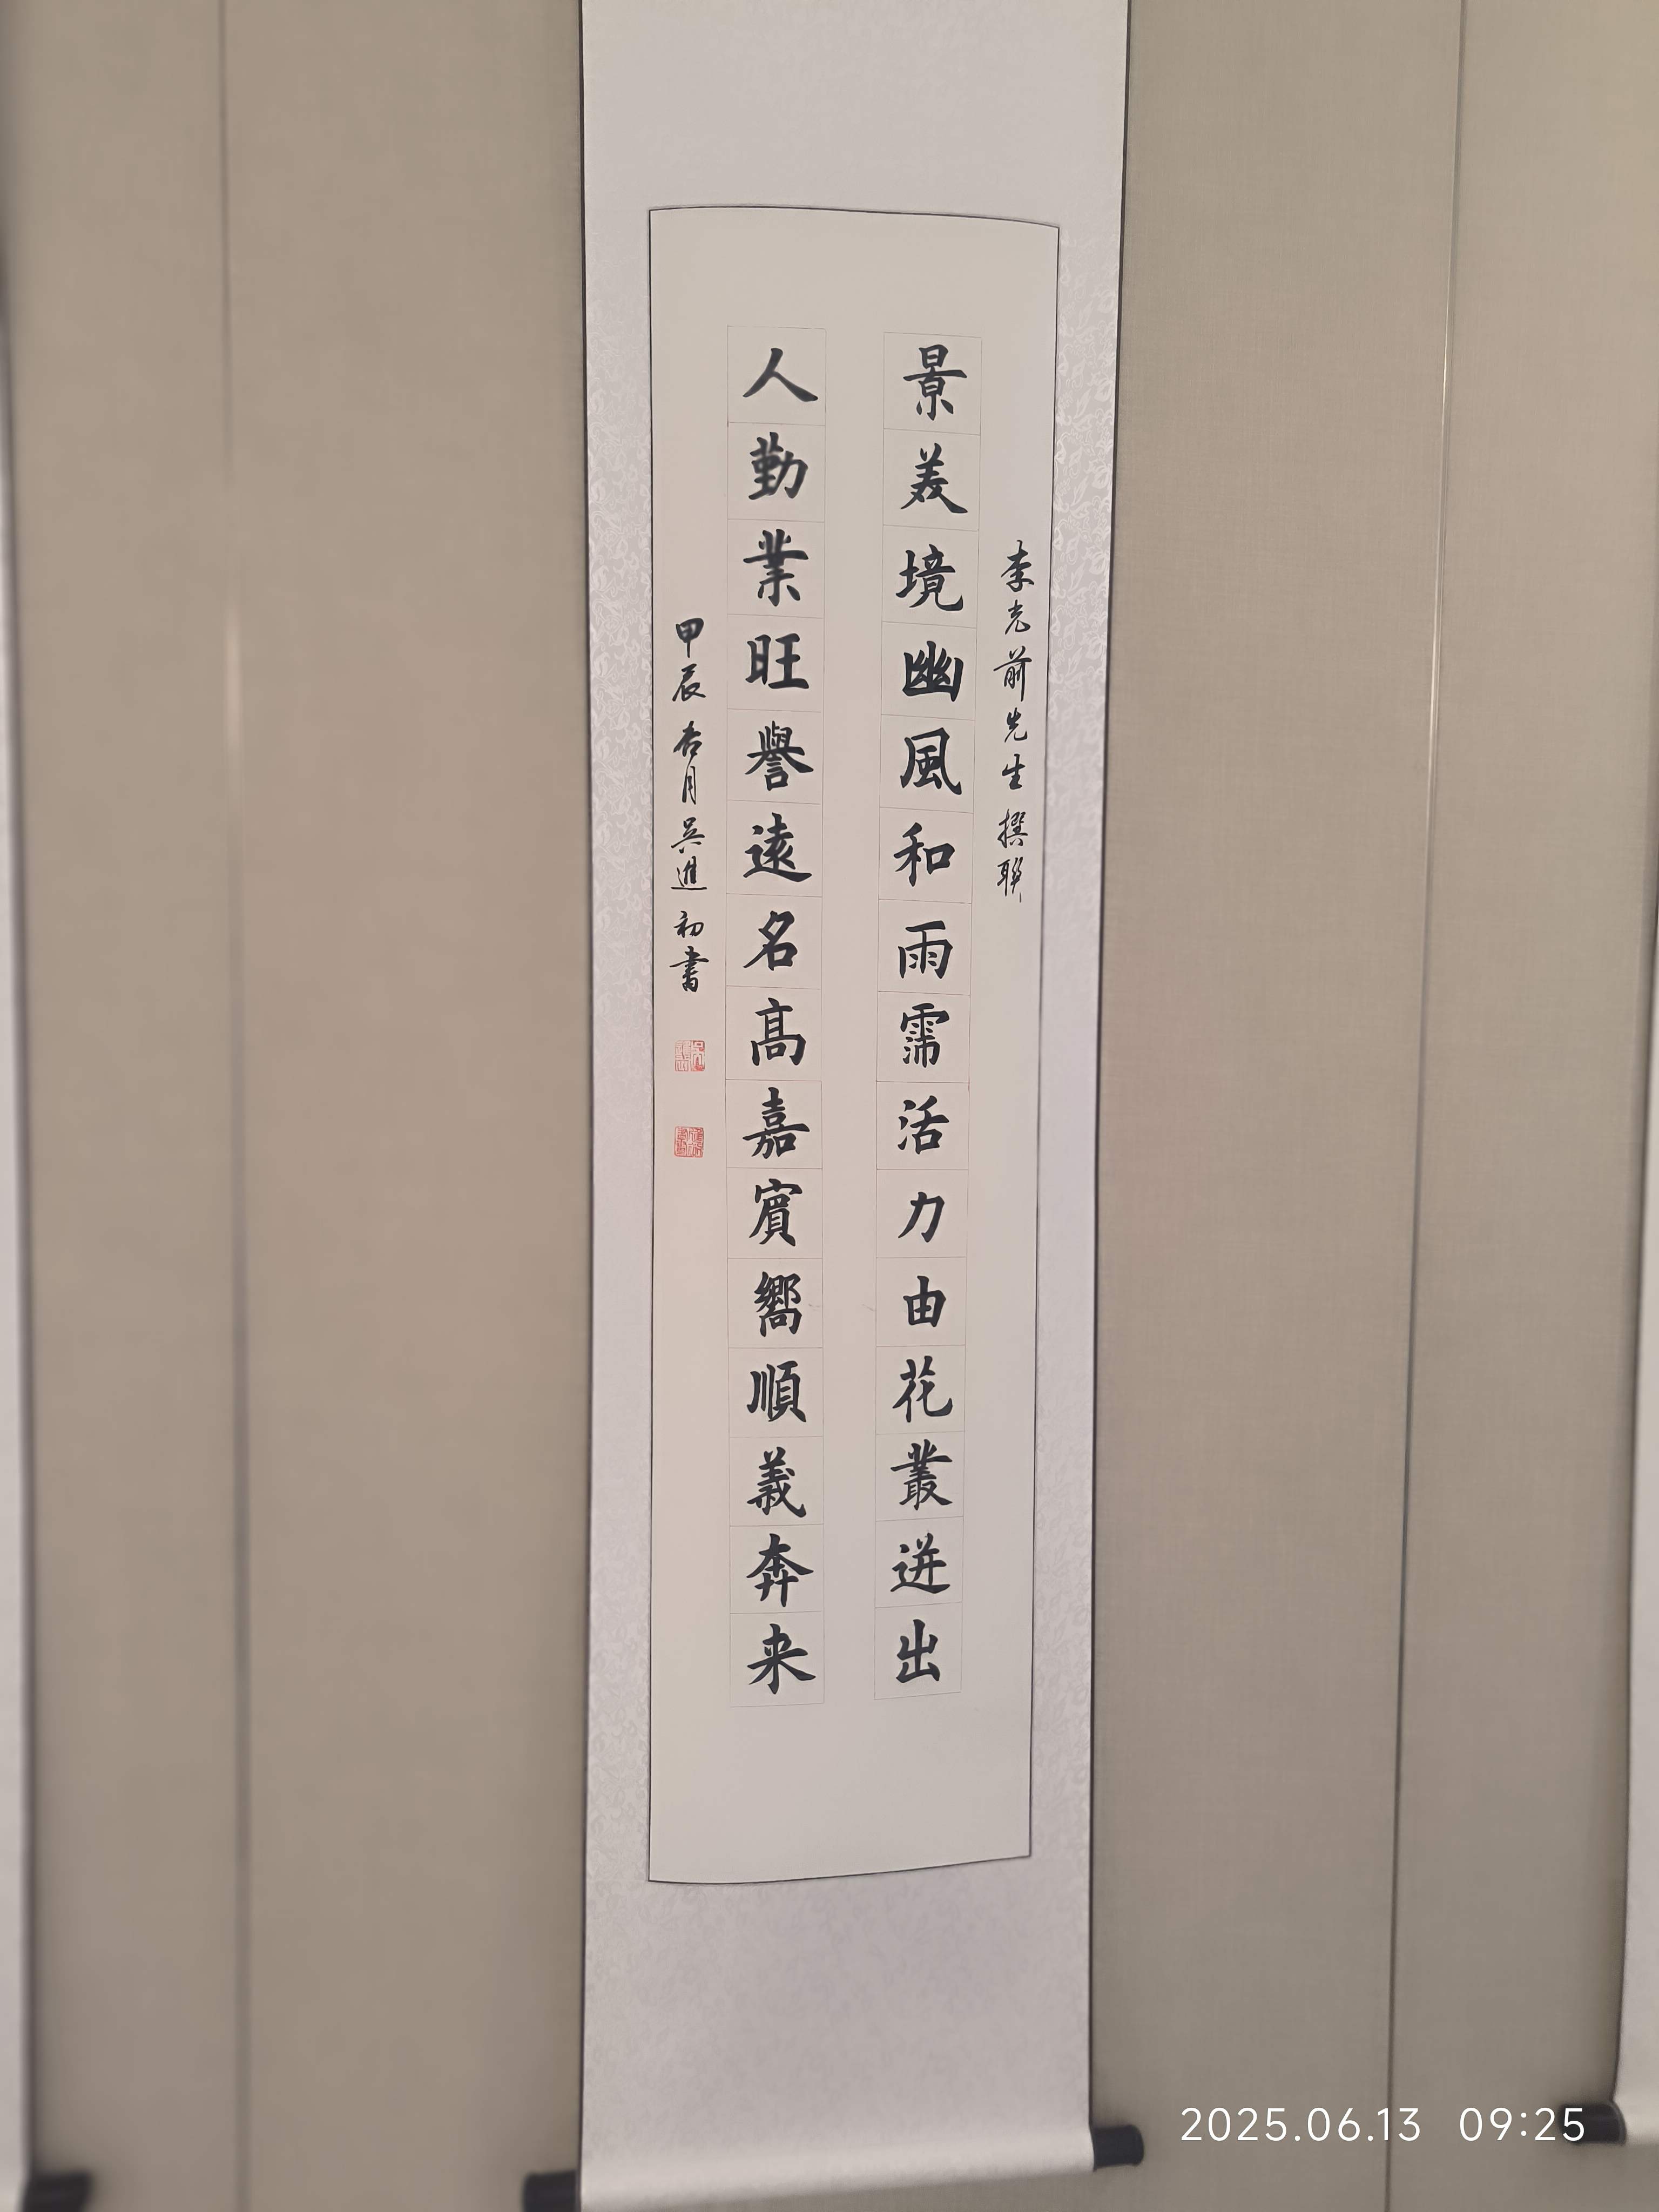 李光前先生撰聯
景美境幽風和雨霈活力由花叢迸出
人勤業旺譽遠名高嘉賓嚮順義奔来
甲辰杏月吴進初書
2025.06.13 09:25